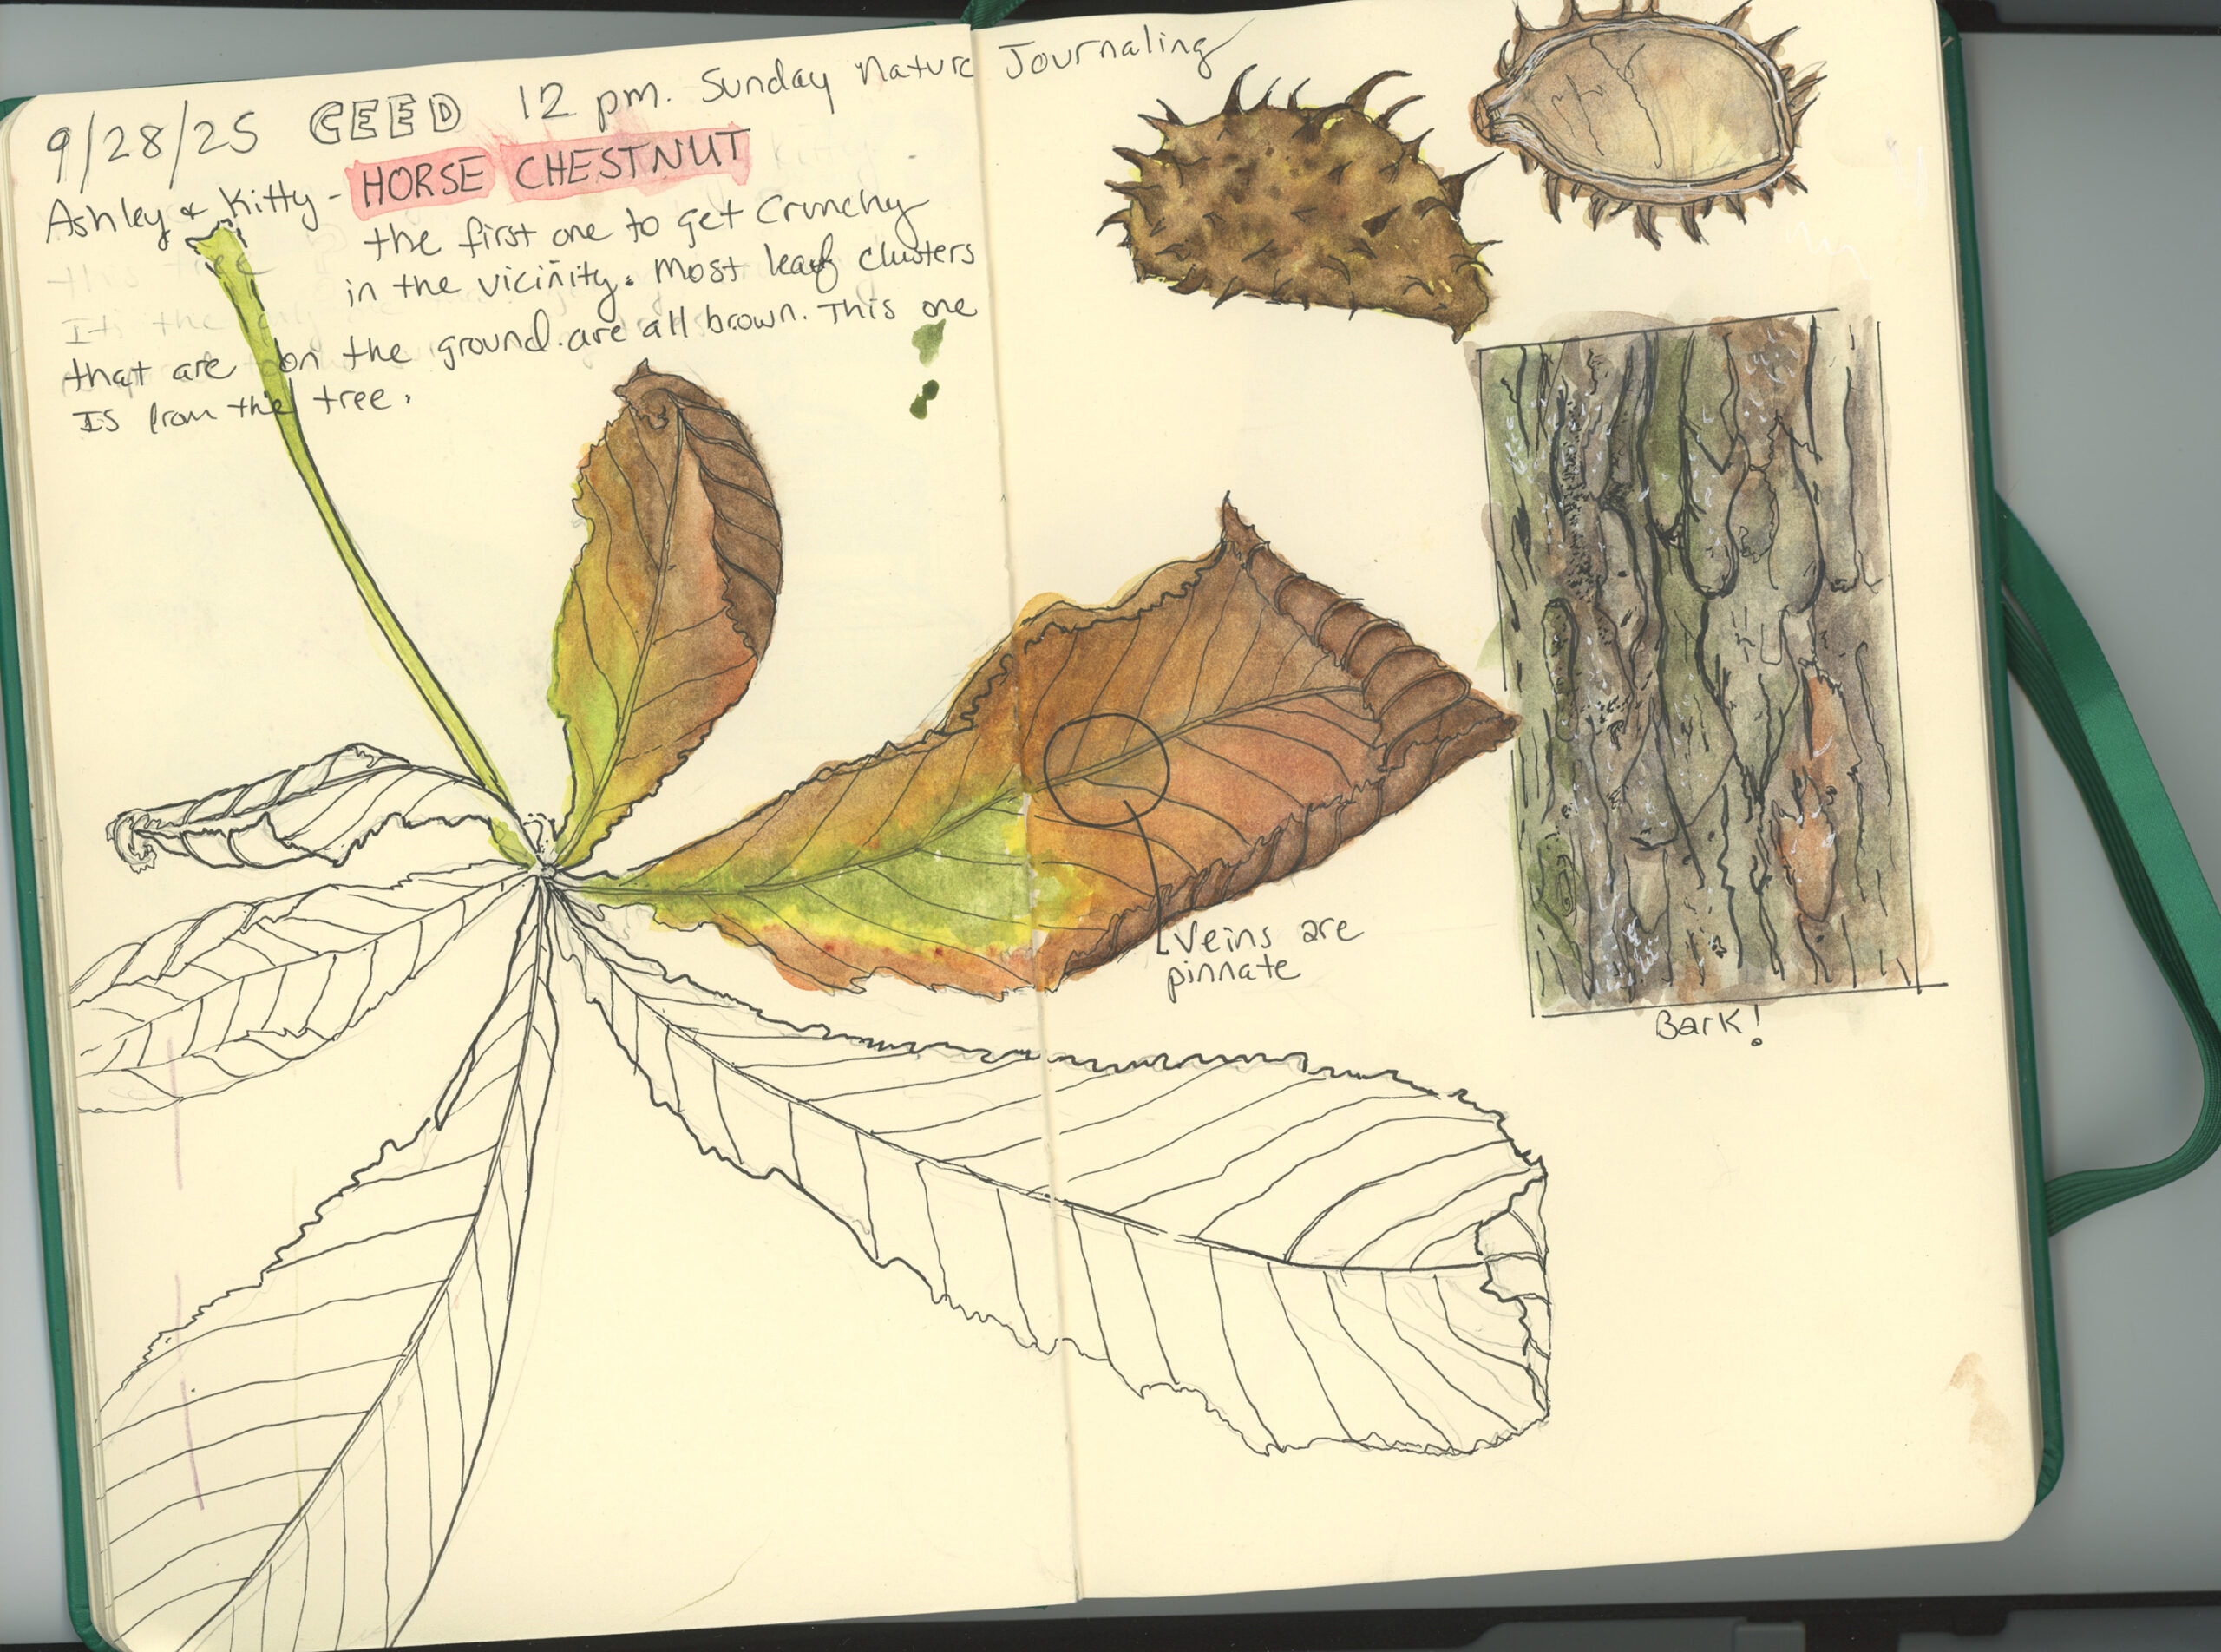 9/28/25 CEED 12 pm. Sunday Nature Journaling
Ashley & Kitty - HORSE CHESTNUT
the first one to get crunchy
in the vicinity. Most leaf clusters
that are on the ground are all brown. This one
Is from the tree.
Veins are
pinnate
Bark!